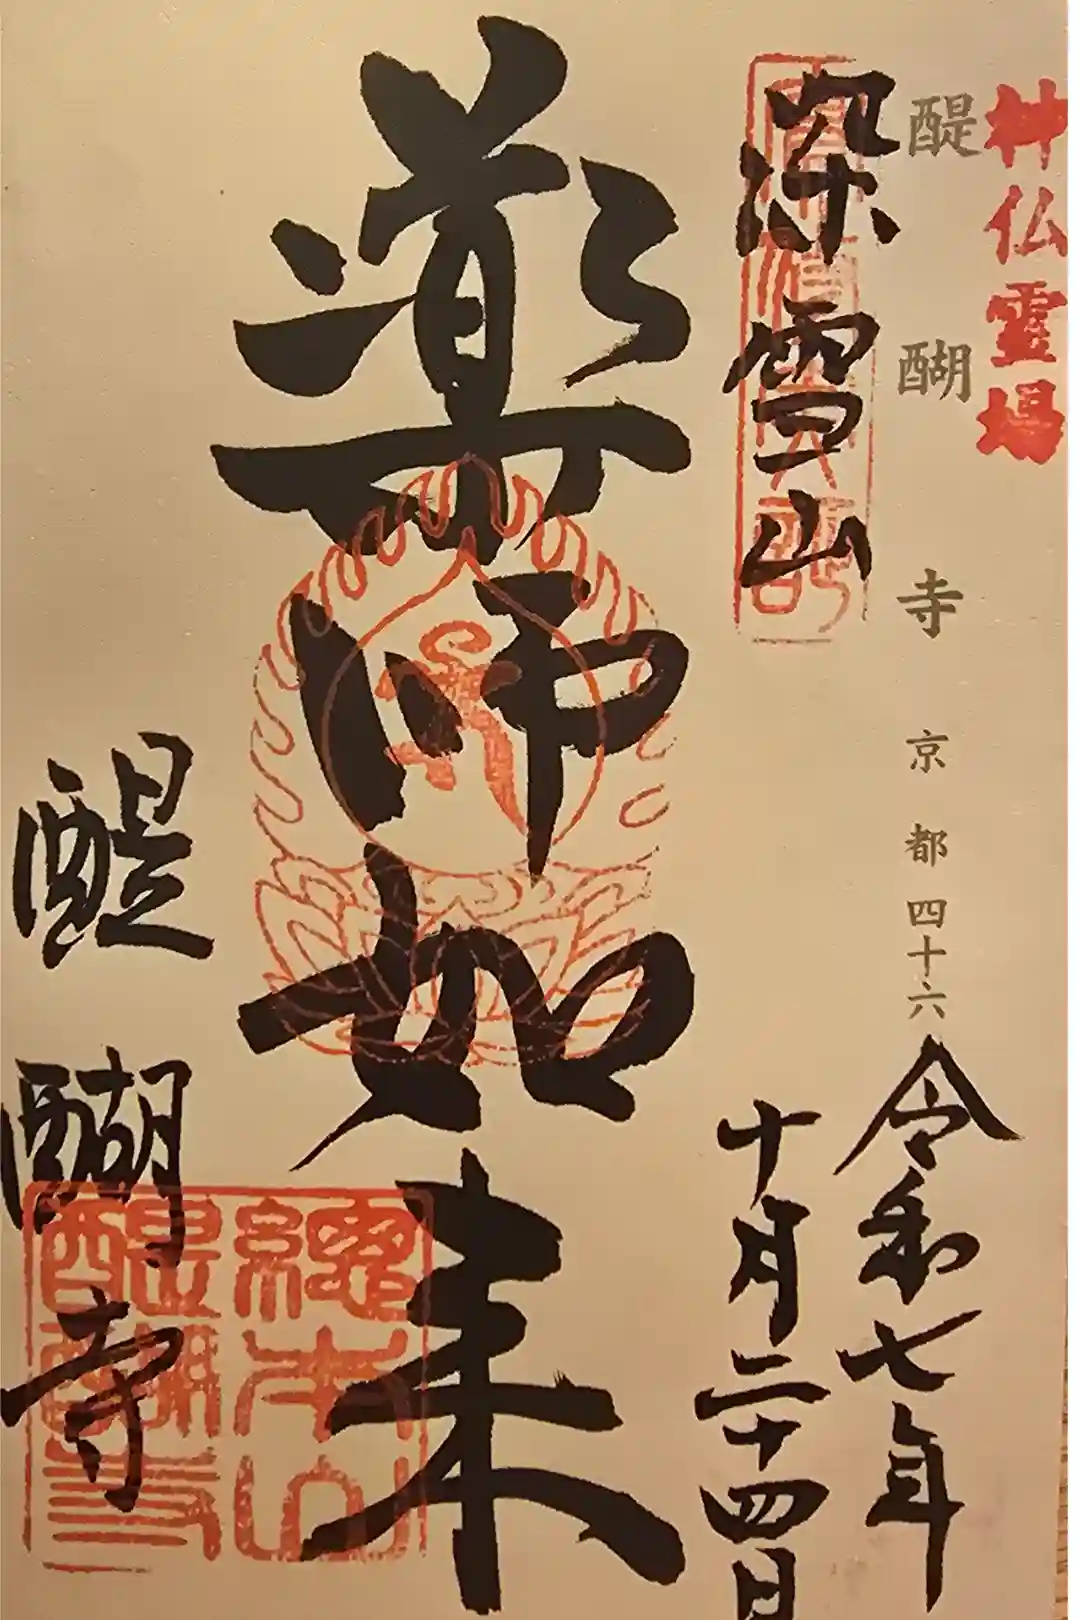 神仏霊場
醍醐寺 京都四十六
令和七年
十月二十四日
深雪山
薬師如来
醍醐寺
總本山
醍醐寺